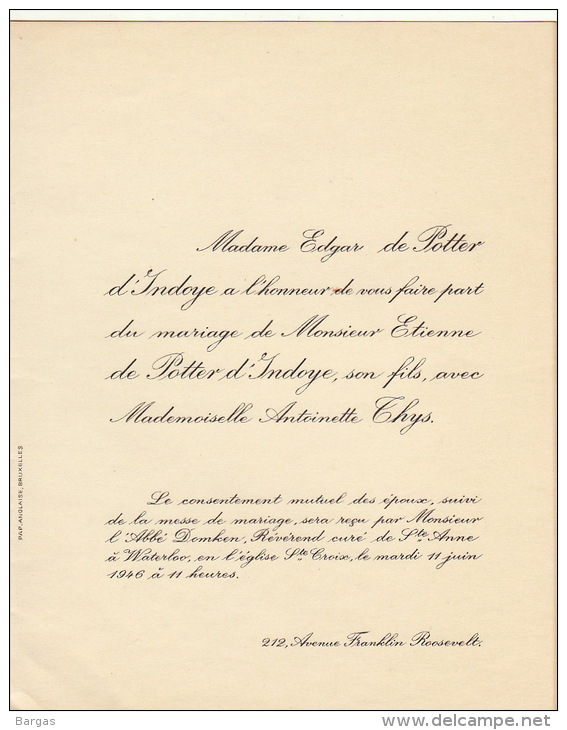 Madame Edgar de Potter
d'Indoye a l'honneur de vous faire part
du mariage de Monsieur Etienne
de Potter d'Indoye, son fils, avec
Mademoiselle Antoinette Thys.
Le consentement mutuel des époux, suivi
de la messe de mariage, sera reçu par Monsieur
l'Abbé Domken, Révérend curé de Ste Anne
à Waterloo, en l'église Ste Croix, le mardi 11 juin
1946 à 11 heures.
212, Avenue Franklin Roosevelt.
PAP. ANGLAISE, BRUXELLES
Bargas
delcampe.net